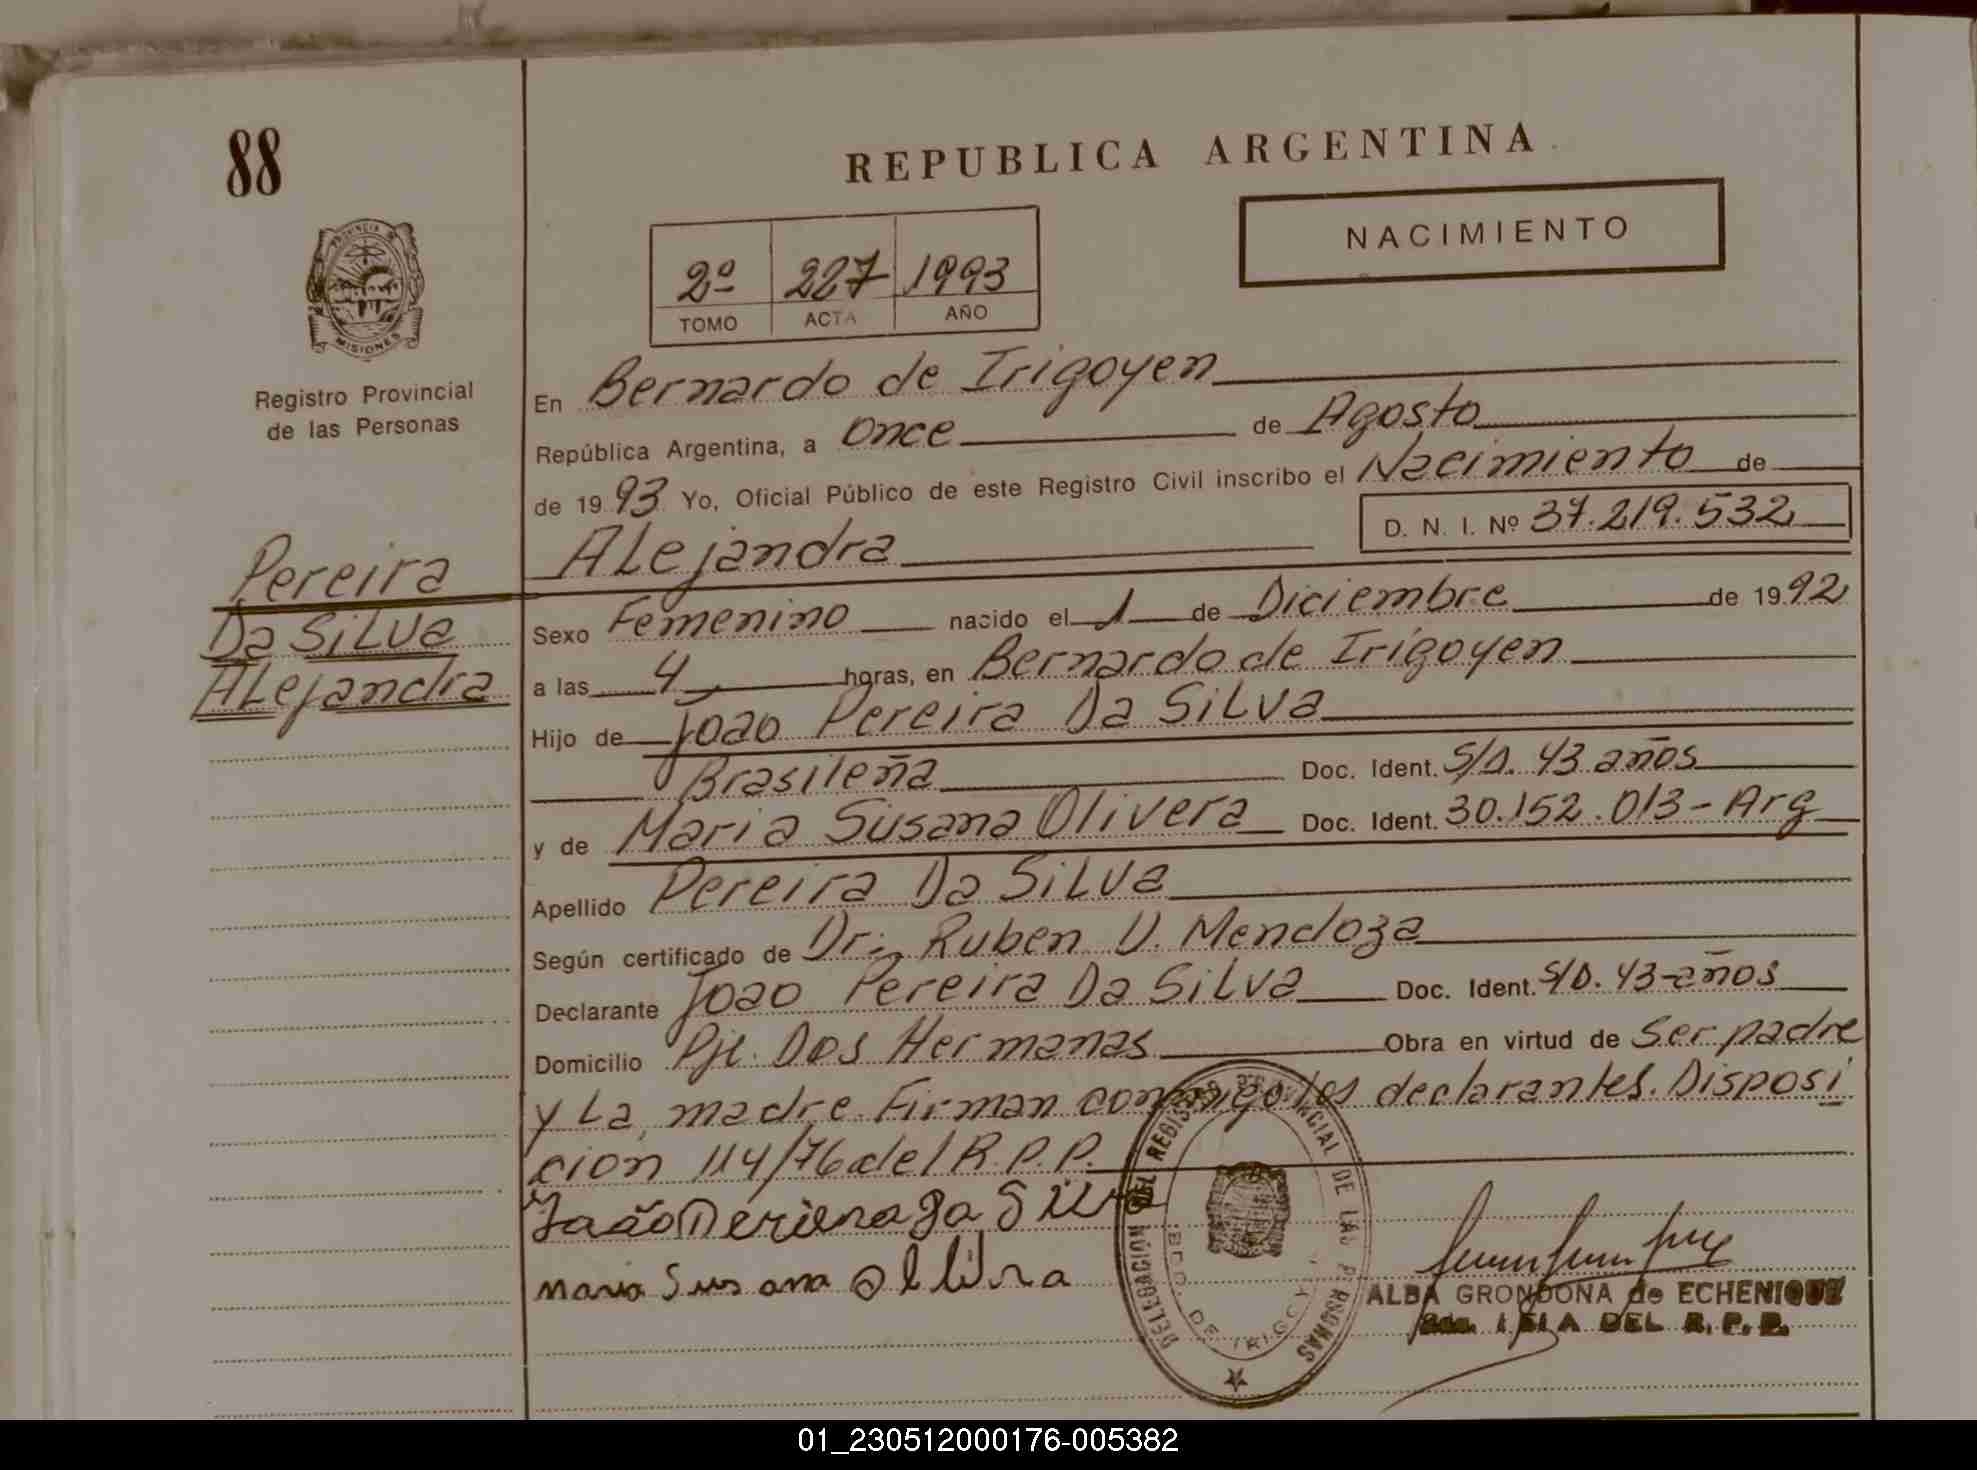 88
REPUBLICA ARGENTINA
NACIMIENTO
2º 227 1993
TOMO ACTA AÑO
PROVINCIA DE
MISIONES
Registro Provincial
de las Personas
En Bernardo de Irigoyen
República Argentina, a once de Agosto
de 1993 Yo, Oficial Público de este Registro Civil inscribo el Nacimiento de
D. N. I. Nº 37.219.532
Alejandra
Pereira
Da Silva
Alejandra
Sexo Femenino nacido el 1 de Diciembre de 1992
a las 4 horas, en Bernardo de Irigoyen
Hijo de Joao Pereira Da Silva
Brasileña Doc. Ident. S/D. 43 años
y de Maria Susana Olivera Doc. Ident. 30.152.013-Arg
Apellido Pereira Da Silva
Según certificado de Dr. Ruben V. Mendoza
Declarante Joao Pereira Da Silva Doc. Ident. S/D. 43-años
Domicilio Pje. Dos Hermanas Obra en virtud de Ser padre
y La madre. Firman conmigo los declarantes. Disposi
cion 114/76 del R.P.P.
Maria Susana
DELEGACION DEL REGISTRO PROVINCIAL DE LAS PERSONAS
BDO. DE IRIGOYEN
ALBA GRONDONA de ECHENIQUE
DEL R.P.P.
01_230512000176-005382